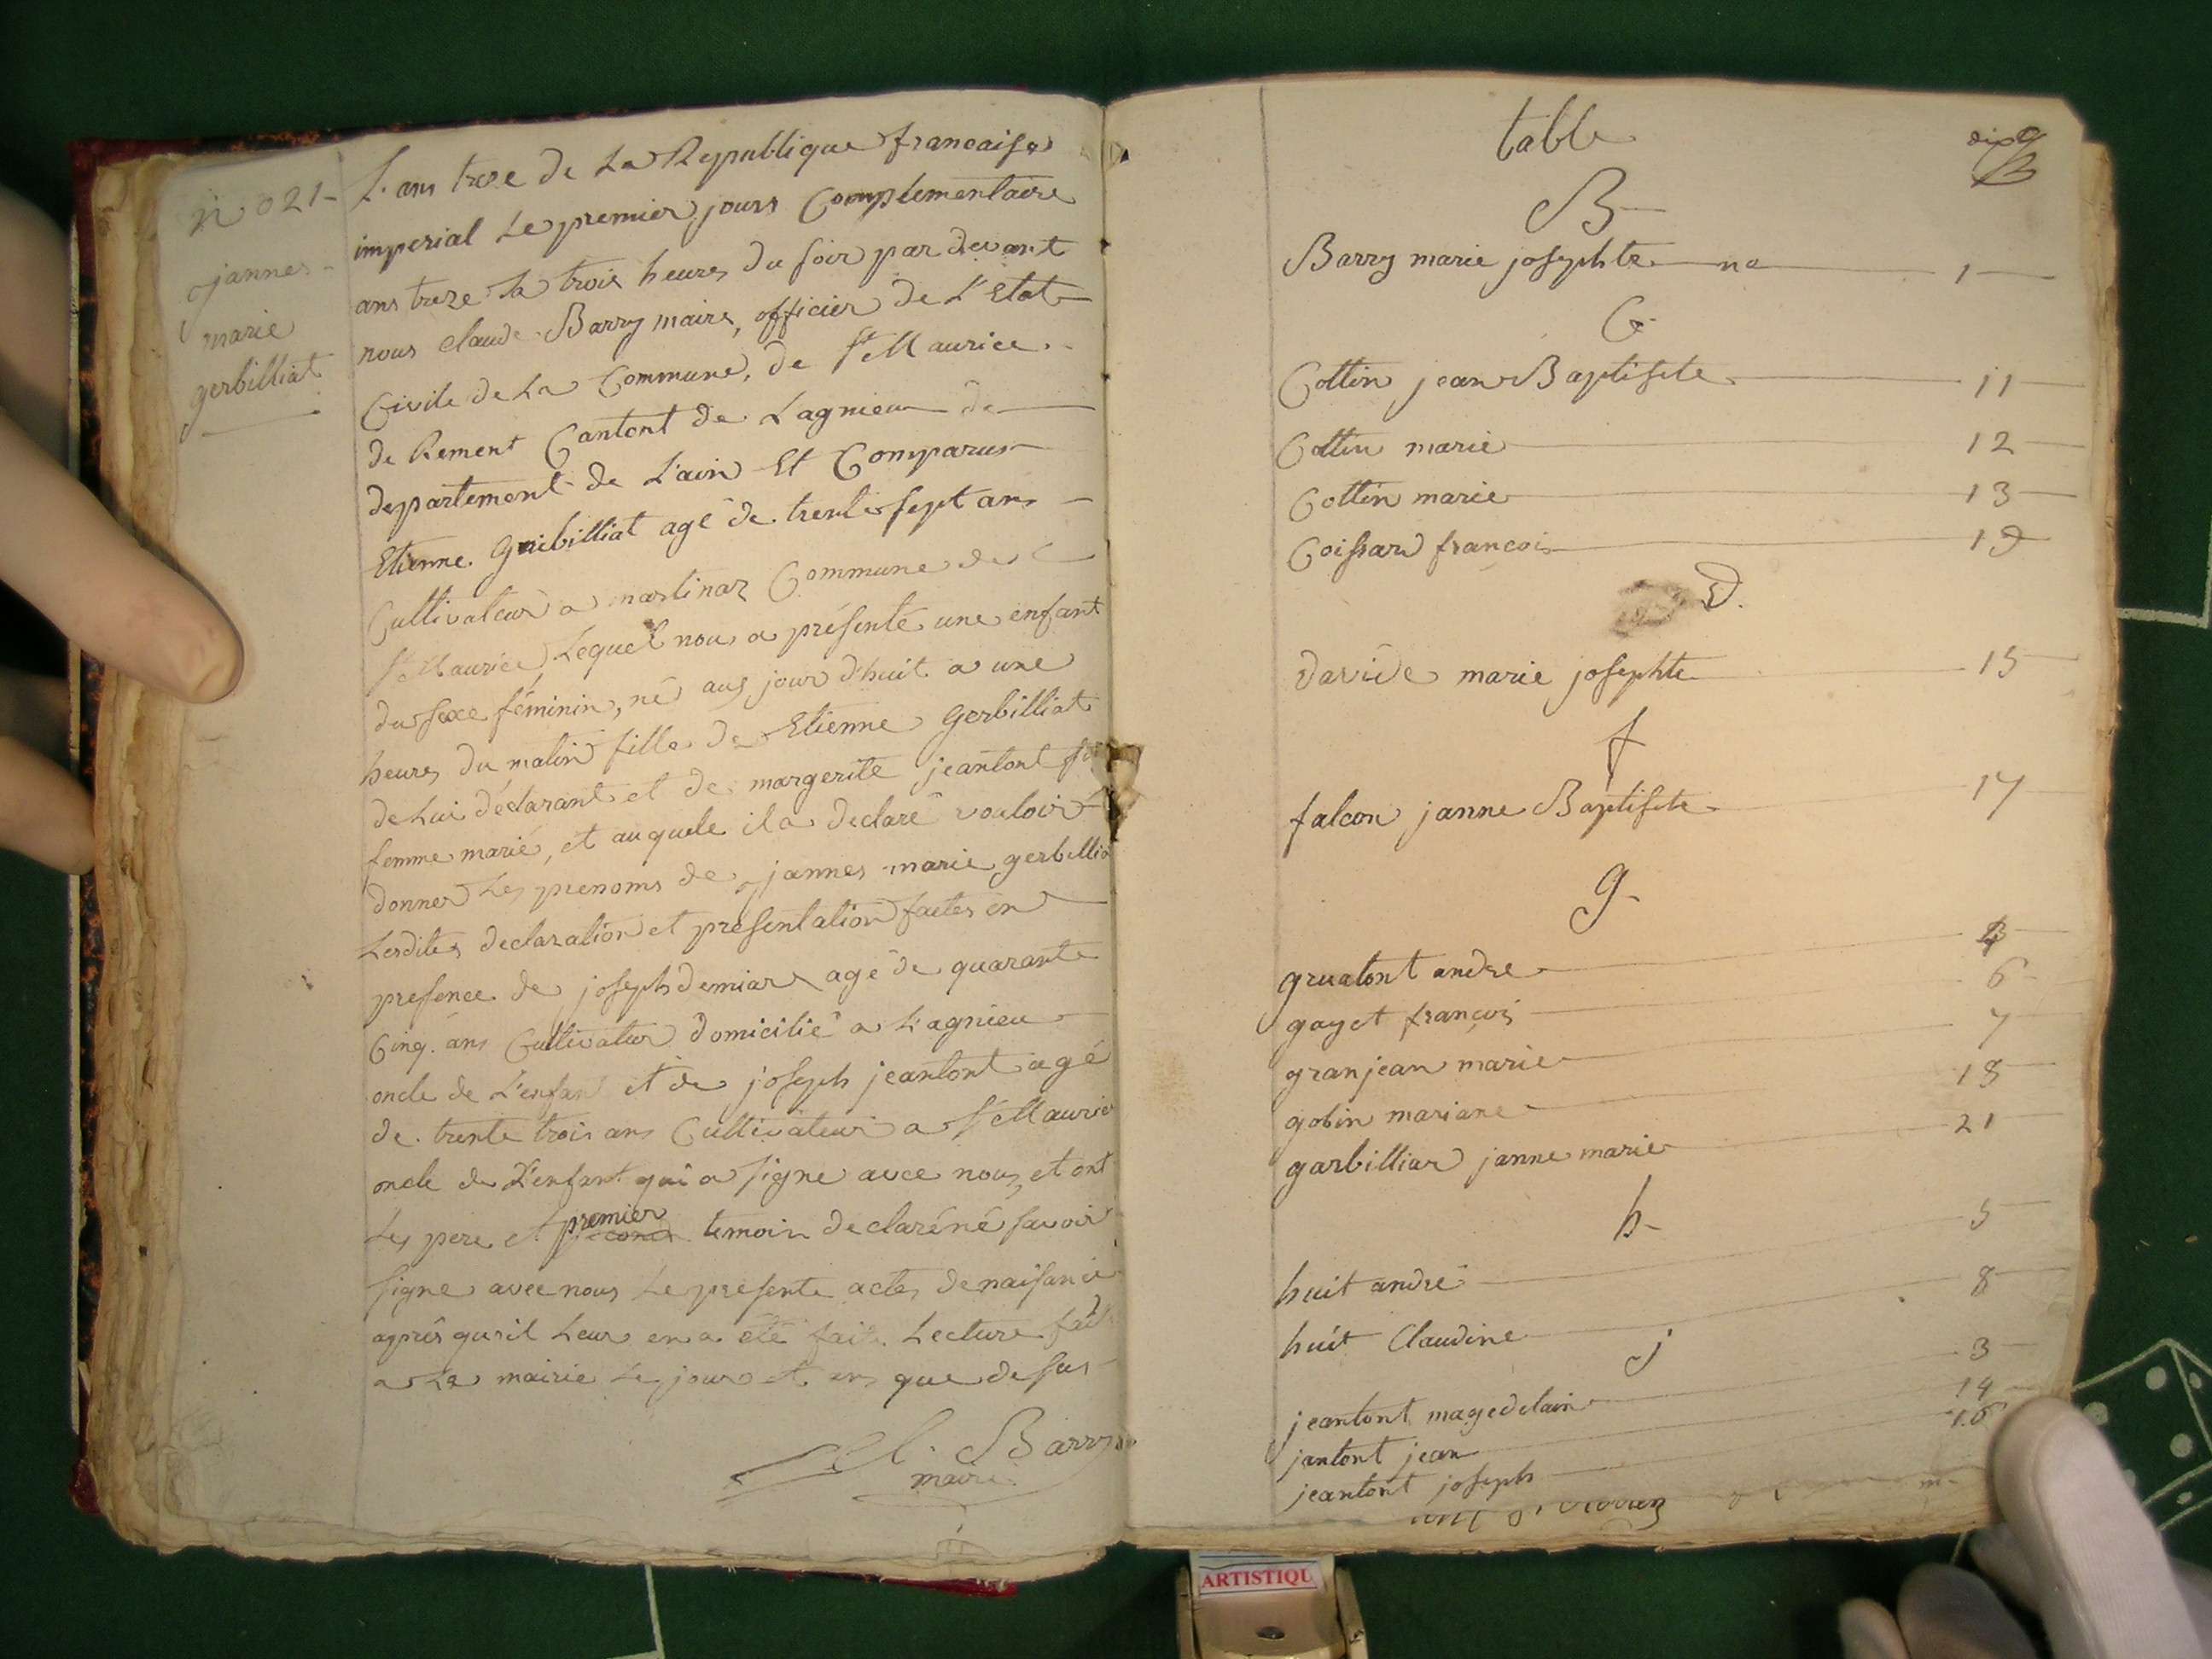 n° 021-
jannes
marie
gerbilliat
L'ans treze de La Republique francaises
imperial Le premier jours Complementaire
ans treze a trois heures du soir par devant
nous claude Barry maire, officier de L'Etat
Civile de La Commune, de St Maurice
de Rement Cantont de Lagnieu de
departement de L'ain Et Comparus
Etienne gerbilliat agé de trente sept ans
Cultivateur a martinaz Commune de
St Maurice, Lequel nous a présenté une enfant
du sexe féminin, né aus jour d'huit a une
heures du matin fille de Etienne gerbilliat
de Lui déclarant et de margerite jeantont sa
femme marié, et auquele il a declaré vouloir
donner Les prenoms de jannes marie gerbillia
Lesdites declaration et presentation faites en
presence de joseph demiare agé de quarante
Cinq ans Cultivateur domicilié a Lagnieu
oncle de L'enfant et de joseph jeantont agé
de trente trois ans Cultivateur a St Maurice
oncle de L'enfant qui a signe avec nous, et ont
Les pere et premier temoin declaréné savoir
signe avec nous Le presente actes de naisance
après qu'il Leur en a été fait Lecture fait
a La mairie Le jour et ans que desus
Cl. Barry
maire
table
B
Barry marie josephte na 1
C
Cottin jean Baptiste 11
Cottin marie 12
Cottin marie 13
Coissard françois 19
D.
davide marie josephte 15
f
falcon janne Baptiste 17
g
gruatont andre 4
gayet françois 6
granjean marie 7
gobin mariane 18
garbilliar janne marie 21
h
huit andré 5
huit Claudine 8
j
jeantont magedelain 3
jantont jean 14
jeantont joseph 16
ARTISTIQU